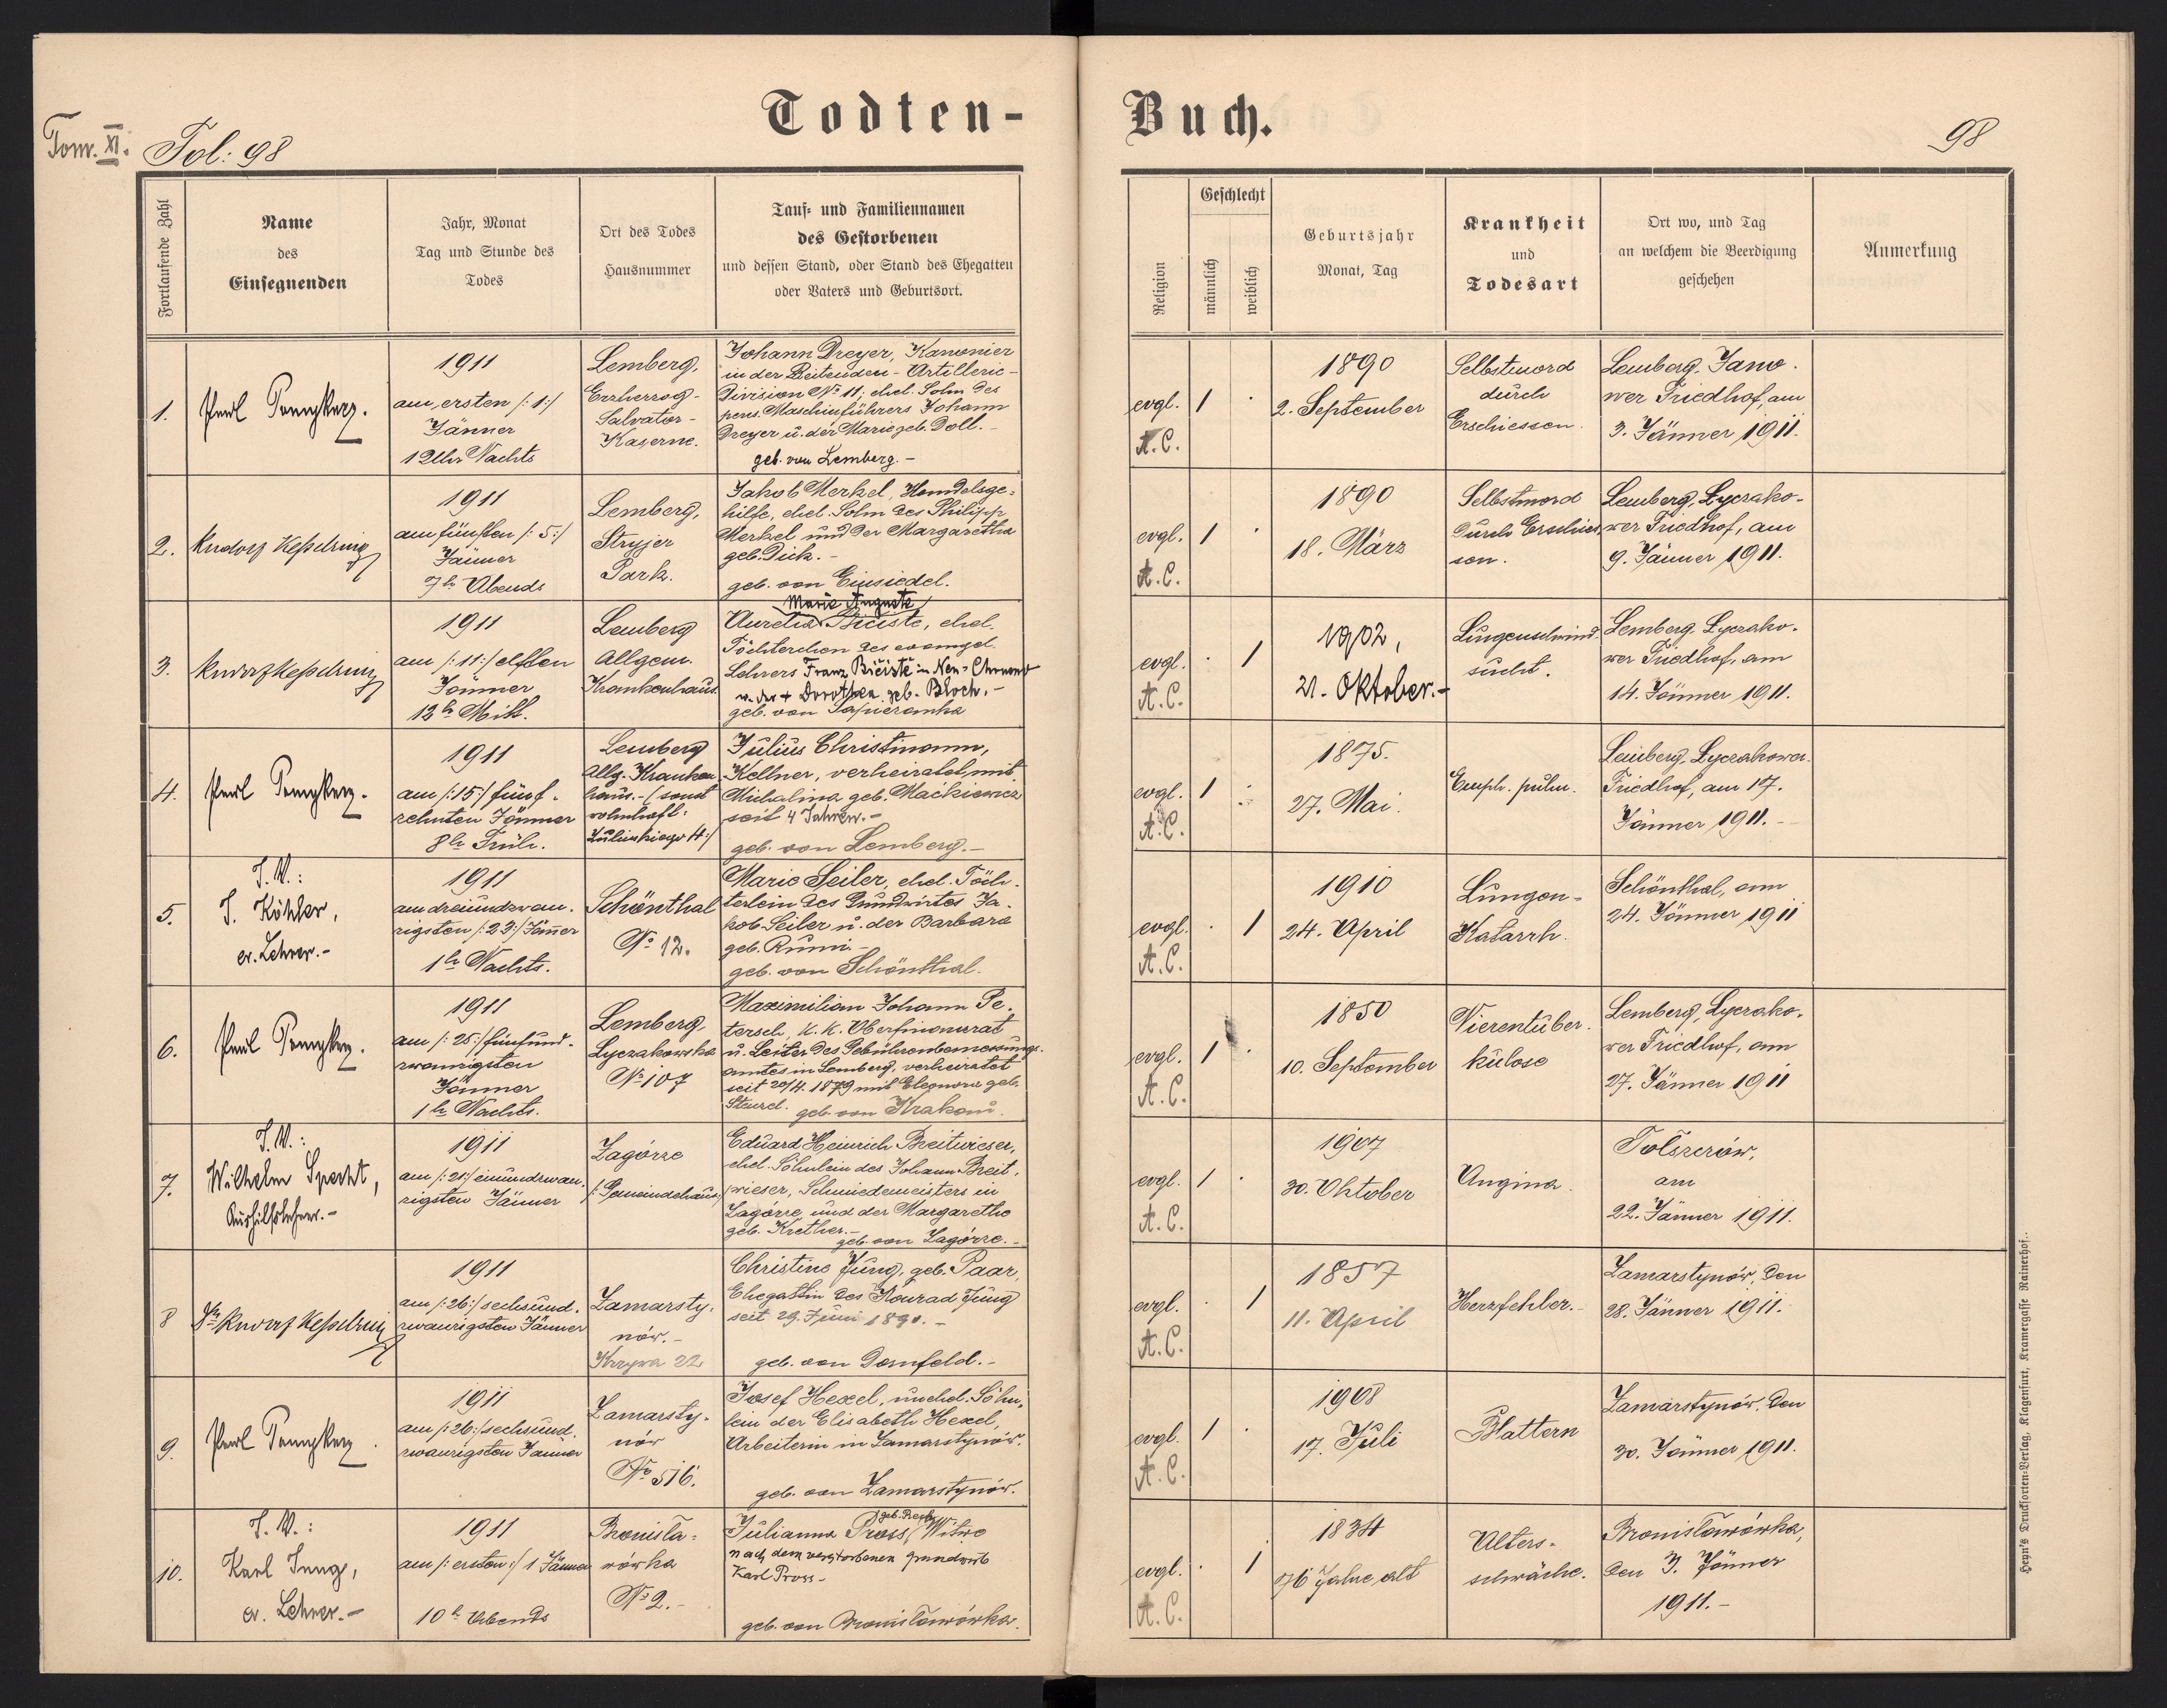 Todten-
Buch.
Tom. XI.
Fol: 98
98
Fortlaufende Zahl
Name
des
Einsegnenden
Jahr, Monat
Tag und Stunde des
Todes
Ort des Todes
Hausnummer
Tauf- und Familiennamen
des Gestorbenen
und dessen Stand, oder Stand des Ehegatten
oder Vaters und Geburtsort.
Religion
Geschlecht
männlich
weiblich
Geburtsjahr
Monat, Tag
Krankheit
und
Todesart
Ort wo, und Tag
an welchem die Beerdigung
geschehen
Anmerkung
1.
1911
am ersten /:1:/
Jänner
1 Uhr Nachts
Lemberg,
Erzherzog-
Salvator-
Kaserne.
Johann Dreyer, Kanonier
in der Reitenden-Artillerie-
Division No 11; ehel. Sohn des
pens. Maschinführers Johann
Dreyer u. der Marie geb. Doll.-
geb. von Lemberg.-
evgl.
A.C.
1
1890
2. September
Selbstmord
durch
Erschiessen.
Lemberg, Jano-
wer Friedhof, am
3. Jänner 1911.
2.
Rudolf Kesselring
1911
am fünften /:5:/
Jänner
7h Abends
Lemberg,
Stryjer
Park.
Jakob Merkel, Handelsge-
hilfe, ehel. Sohn des Philipp
Merkel und der Margaretha
geb. Dick.-
geb. von Einsiedel.
evgl.
A.C.
1
1890
18. März
Selbstmord
durch Erschies-
sen.
Lemberg, Lyczako-
wer Friedhof, am
9. Jänner 1911.
3.
Rudolf Kesselring
1911
am /:11:/ elften
Jänner
12h Mitt.
Lemberg
Allgem.
Krankenhaus
Marie Auguste
Aurelia ehel.
Töchterchen des evangel.
Lehrers Franz in Neu-
u. der + Dorothea geb. Bloch.-
geb. von Sapieranka
evgl.
A.C.
1
1902,
21. Oktober.-
Lungenschwind-
sucht.
Lemberg, Lyczako-
wer Friedhof, am
14. Jänner 1911.
4.
1911
am /:15:/ fünf-
zehnten Jänner
8h Früh.
Lemberg
Allg. Kranken-
haus.- (sonst
wohnhaft:
4:/
Julius Christmann,
Kellner, verheiratet mit
Michalina geb. Mackiewicz
seit 4 Jahren.-
geb. von Lemberg.-
evgl.
A.C.
1
1875.
27. Mai.
Emph. pulm.
Lemberg, Lyczakower
Friedhof, am 17.
Jänner 1911.-
5.
I.V.:
J. Köhler,
ev. Lehrer.-
1911
am dreiundzwan-
zigsten /:23:/ Jänner
1h Nachts.
Schönthal
No 12.
Marie Seiler, ehel. Töch-
terlein des Grundwirtes Ja-
kob Seiler u. der Barbara
geb. Rumi-
geb. von Schönthal.
evgl.
A.C.
1
1910
24. April
Lungen-
Katarrh.
Schönthal, am
24. Jänner 1911
6.
1911
am /:25:/ fünfund-
zwanzigsten
Jänner
1h Nachts.
Lemberg,
Lyczakowska
No 107
Maximilian Johann Pe-
tersch, k. k. Oberfinanzrat
u. Leiter des Gebührenbemessungs-
amtes in Lemberg, verheiratet
seit 20/4. 1879 mit Eleonora geb.
geb. von Krakau.
evgl.
A.C.
1
1850
10. September
Nierentuber-
kulose
Lemberg, Lyczako-
wer Friedhof, am
27. Jänner 1911
7.
I.V.:
Wilhelm Specht,
Aushilfslehrer.-
1911
am /:21:/ einundzwan-
zigsten Jänner
Zagórze
/:Gemeindehaus:/
Eduard Heinrich Breitwieser,
ehel. Söhnlein des Johann Breit-
wieser, Schmiedemeisters in
Zagórze und der Margarethe
geb. Krether.-
geb. von Zagórze.-
evgl.
A.C.
1
1907
30. Oktober
Angina.
Tolszczów,
am
22. Jänner 1911.
8
Rudolf Kesselring
1911
am /:26:/ sechsund-
zwanzigsten Jänner
Zamarsty-
nów.-
Krzywa 22
Christine Jung, geb. Paar,
Ehegattin des Konrad Jung
seit 29. Juni 1890.-
geb. von Dornfeld.-
evgl.
A.C.
1
1857
11. April
Herzfehler.-
Zamarstynów, den
28. Jänner 1911.
9.
1911
am /:26:/ sechsund-
zwanzigsten Jänner
Zamarsty-
nów
No 516.
Josef Hexel, unehel. Söhn-
lein der Elisabeth Hexel,
Arbeiterin in Zamarstynów.
geb. von Zamarstynów.
evgl.
A.C.
1
1908
17. Juli
Blattern
Zamarstynów, den
30. Jänner 1911.
10.
I.V.:
Karl Jung,
ev. Lehrer.-
1911
am /:ersten:/ 1 Jänner
10h Abends
Bronisła-
wówka
No 2.-
Julianna Pross, Witwe
nach dem verstorbenen Grundwirte
Karl Pross-
geb. von Bronisławówka.
evgl.
A.C.
1
1834
76 Jahre alt
Alters-
schwäche.
Bronisławówka,
den 3. Jänner
1911.-
Heyn's Drucksorten-Verlag, Klagenfurt, Kramergasse Rainerhof.